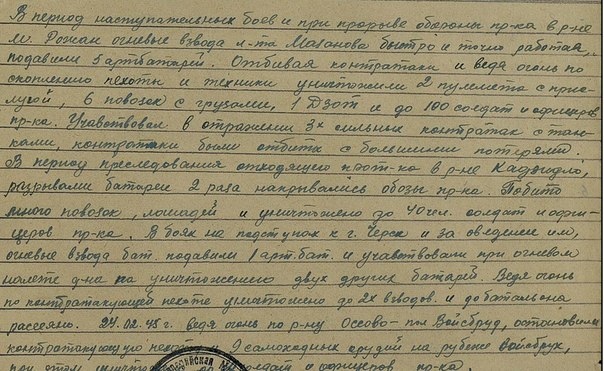 В период наступательных боев и при прорыве обороны пр-ка в р-не
м. Рожан огневые взвода л-та Маханова быстро и точно работая,
подавили 5 артбатарей. Отбивая контратаки и ведя огонь по
скоплению пехоты и техники уничтожили 2 пулемета с прис-
лугой, 6 повозок с грузами, 1 Дзот и до 100 солдат и офицеров
пр-ка. Учавствовал в отражении 3х сильных контратак с тан-
ками, контратаки были отбиты с большими потерями.
В период преследования отходящего прот-ка в р-не Кадзидло,
разрывами батареи 2 раза накрывались обозы пр-ка. Побито
много повозок, лошадей и уничтожено до 40 чел. солдат и офи-
церов пр-ка. В боях на подступах к г. Черск и за овладение им,
огневые взвода бат. подавили 1 арт. бат. и учавствовали при огневом
налете д-на на уничтожению двух других батарей. Ведя огонь
по контратакующей пехоте уничтожено до 2х взводов и до батальона
рассеяно. 24.02.45 г. ведя огонь по р-ну Оссово - Вайсбруд, остановили
контратакующую пехоту и 9 самоходных орудий на рубеже Вайсбрух,
при этом солдат и офицеров пр-ка.